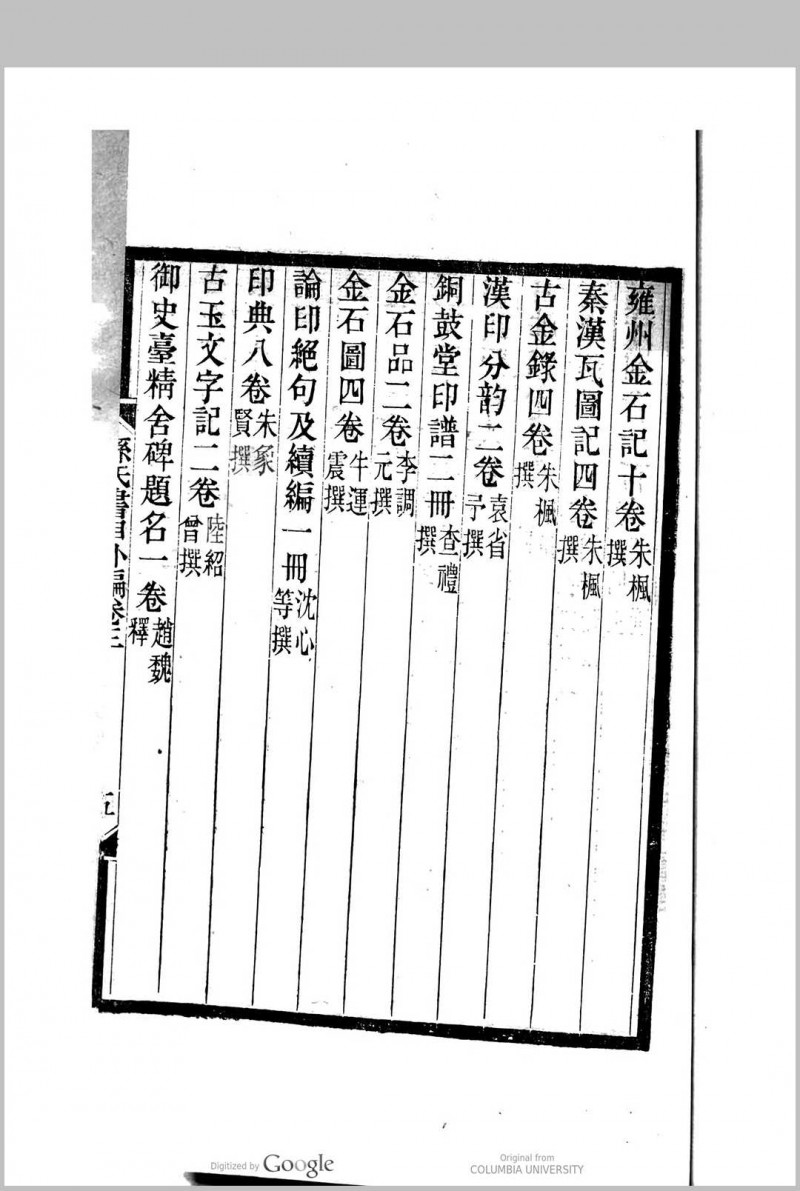 雍州金石記十卷朱楓撰
秦漢瓦圖記四卷朱楓撰
古金錄四卷朱楓撰
漢印分韵二卷袁省予撰
銅鼓堂印譜二冊查禮撰
金石品二卷李調元撰
金石圖四卷牛運震撰
論印絕句及續編一冊沈心等撰
印典八卷朱象賢撰
古玉文字記二卷陸紹曾撰
御史臺精舍碑題名一卷趙魏釋
孫氏書目外編卷三
五
Digitized by Google
Original from
COLUMBIA UNIVERSITY